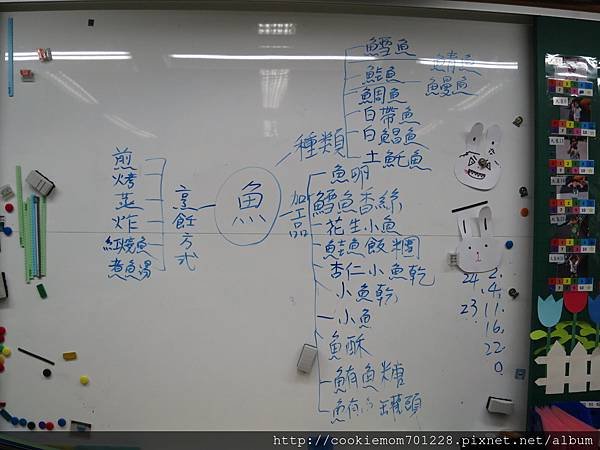 魚
種類
鱈魚
鯖魚
鮭魚
鰻魚
鯛魚
白帶魚
白鯧魚
土魠魚
加工品
魚卵
鱈魚香絲
花生小魚
鮭魚飯糰
杏仁小魚乾
小魚乾
小魚
魚酥
鮪魚糖
罐頭
烹飪方式
煎
烤
蒸
炸
紅燒魚
煮魚湯
24 2.
4.
23 11.
16.
22.
0.
http://cookiemom701228.pixnet.net/album